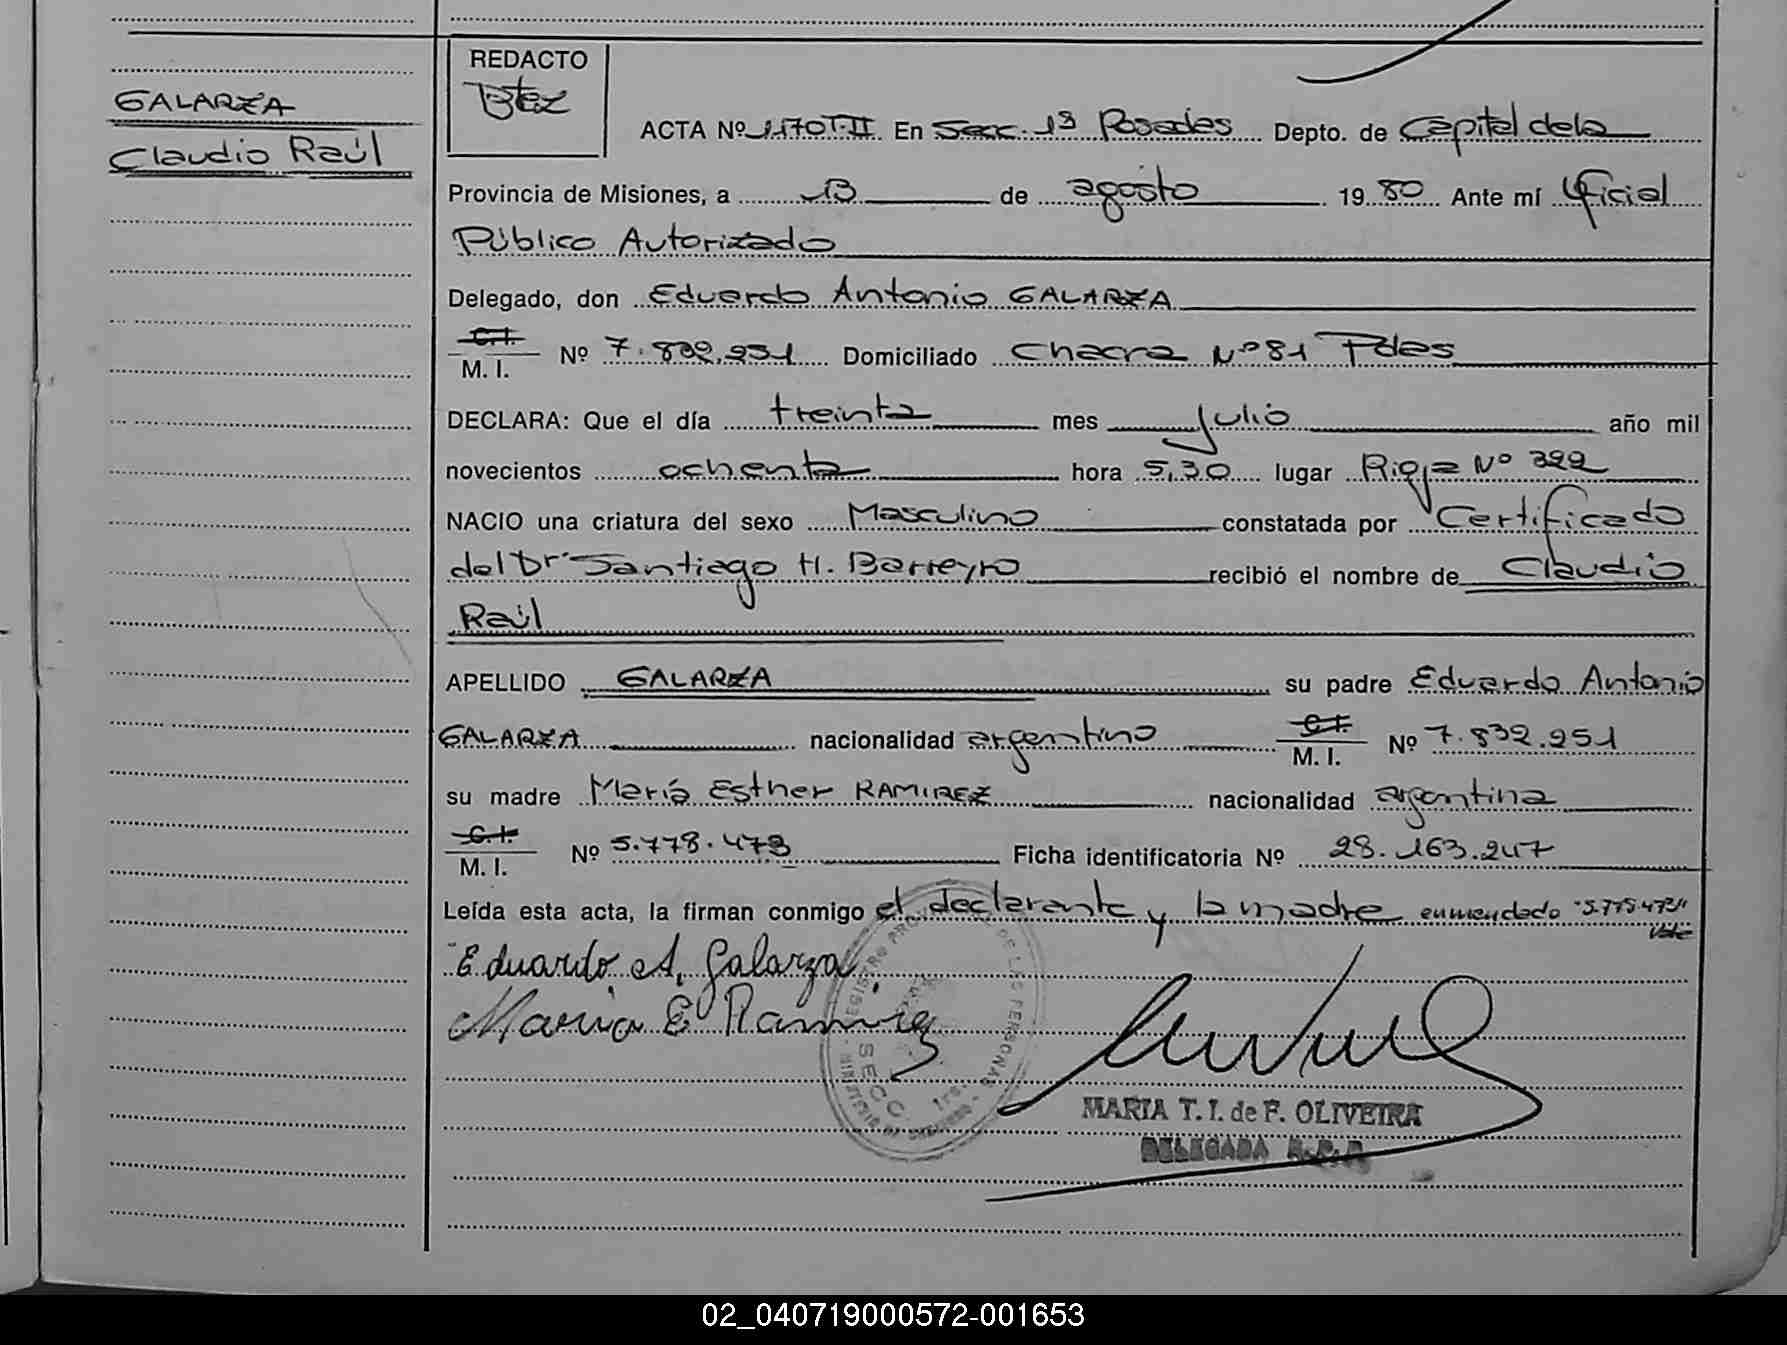 GALARZA
Claudio Raúl
REDACTO
Btez
ACTA Nº 1170T.II En Secc. 1ª Posadas Depto. de Capital de la
Provincia de Misiones, a 13 de agosto 1980 Ante mí Oficial
Público Autorizado
Delegado, don Eduardo Antonio GALARZA
C.I.
M. I. Nº 7.832.251 Domiciliado Chacra Nº 81 Pdas
DECLARA: Que el día treinta mes julio año mil
novecientos ochenta hora 5,30 lugar Rioja Nº 322
NACIO una criatura del sexo Masculino constatada por Certificado
del Dr Santiago H. Barreyro recibió el nombre de Claudio
Raúl
APELLIDO GALARZA su padre Eduardo Antonio
GALARZA nacionalidad argentino C.I.
M. I. Nº 7.832.251
su madre María Esther RAMIREZ nacionalidad argentina
C.I.
M. I. Nº 5.778.473 Ficha identificatoria Nº 28.163.247
Leída esta acta, la firman conmigo el declarante y la madre enmendado
Vale
Eduardo A. Galarza
Maria E Ramirez
REGISTRO DE LAS PERSONAS
SECC. 1ra.
MINISTERIO DE GOBIERNO
MARIA T. I. de F. OLIVEIRA
DELEGADA R.P.P.
02_040719000572-001653